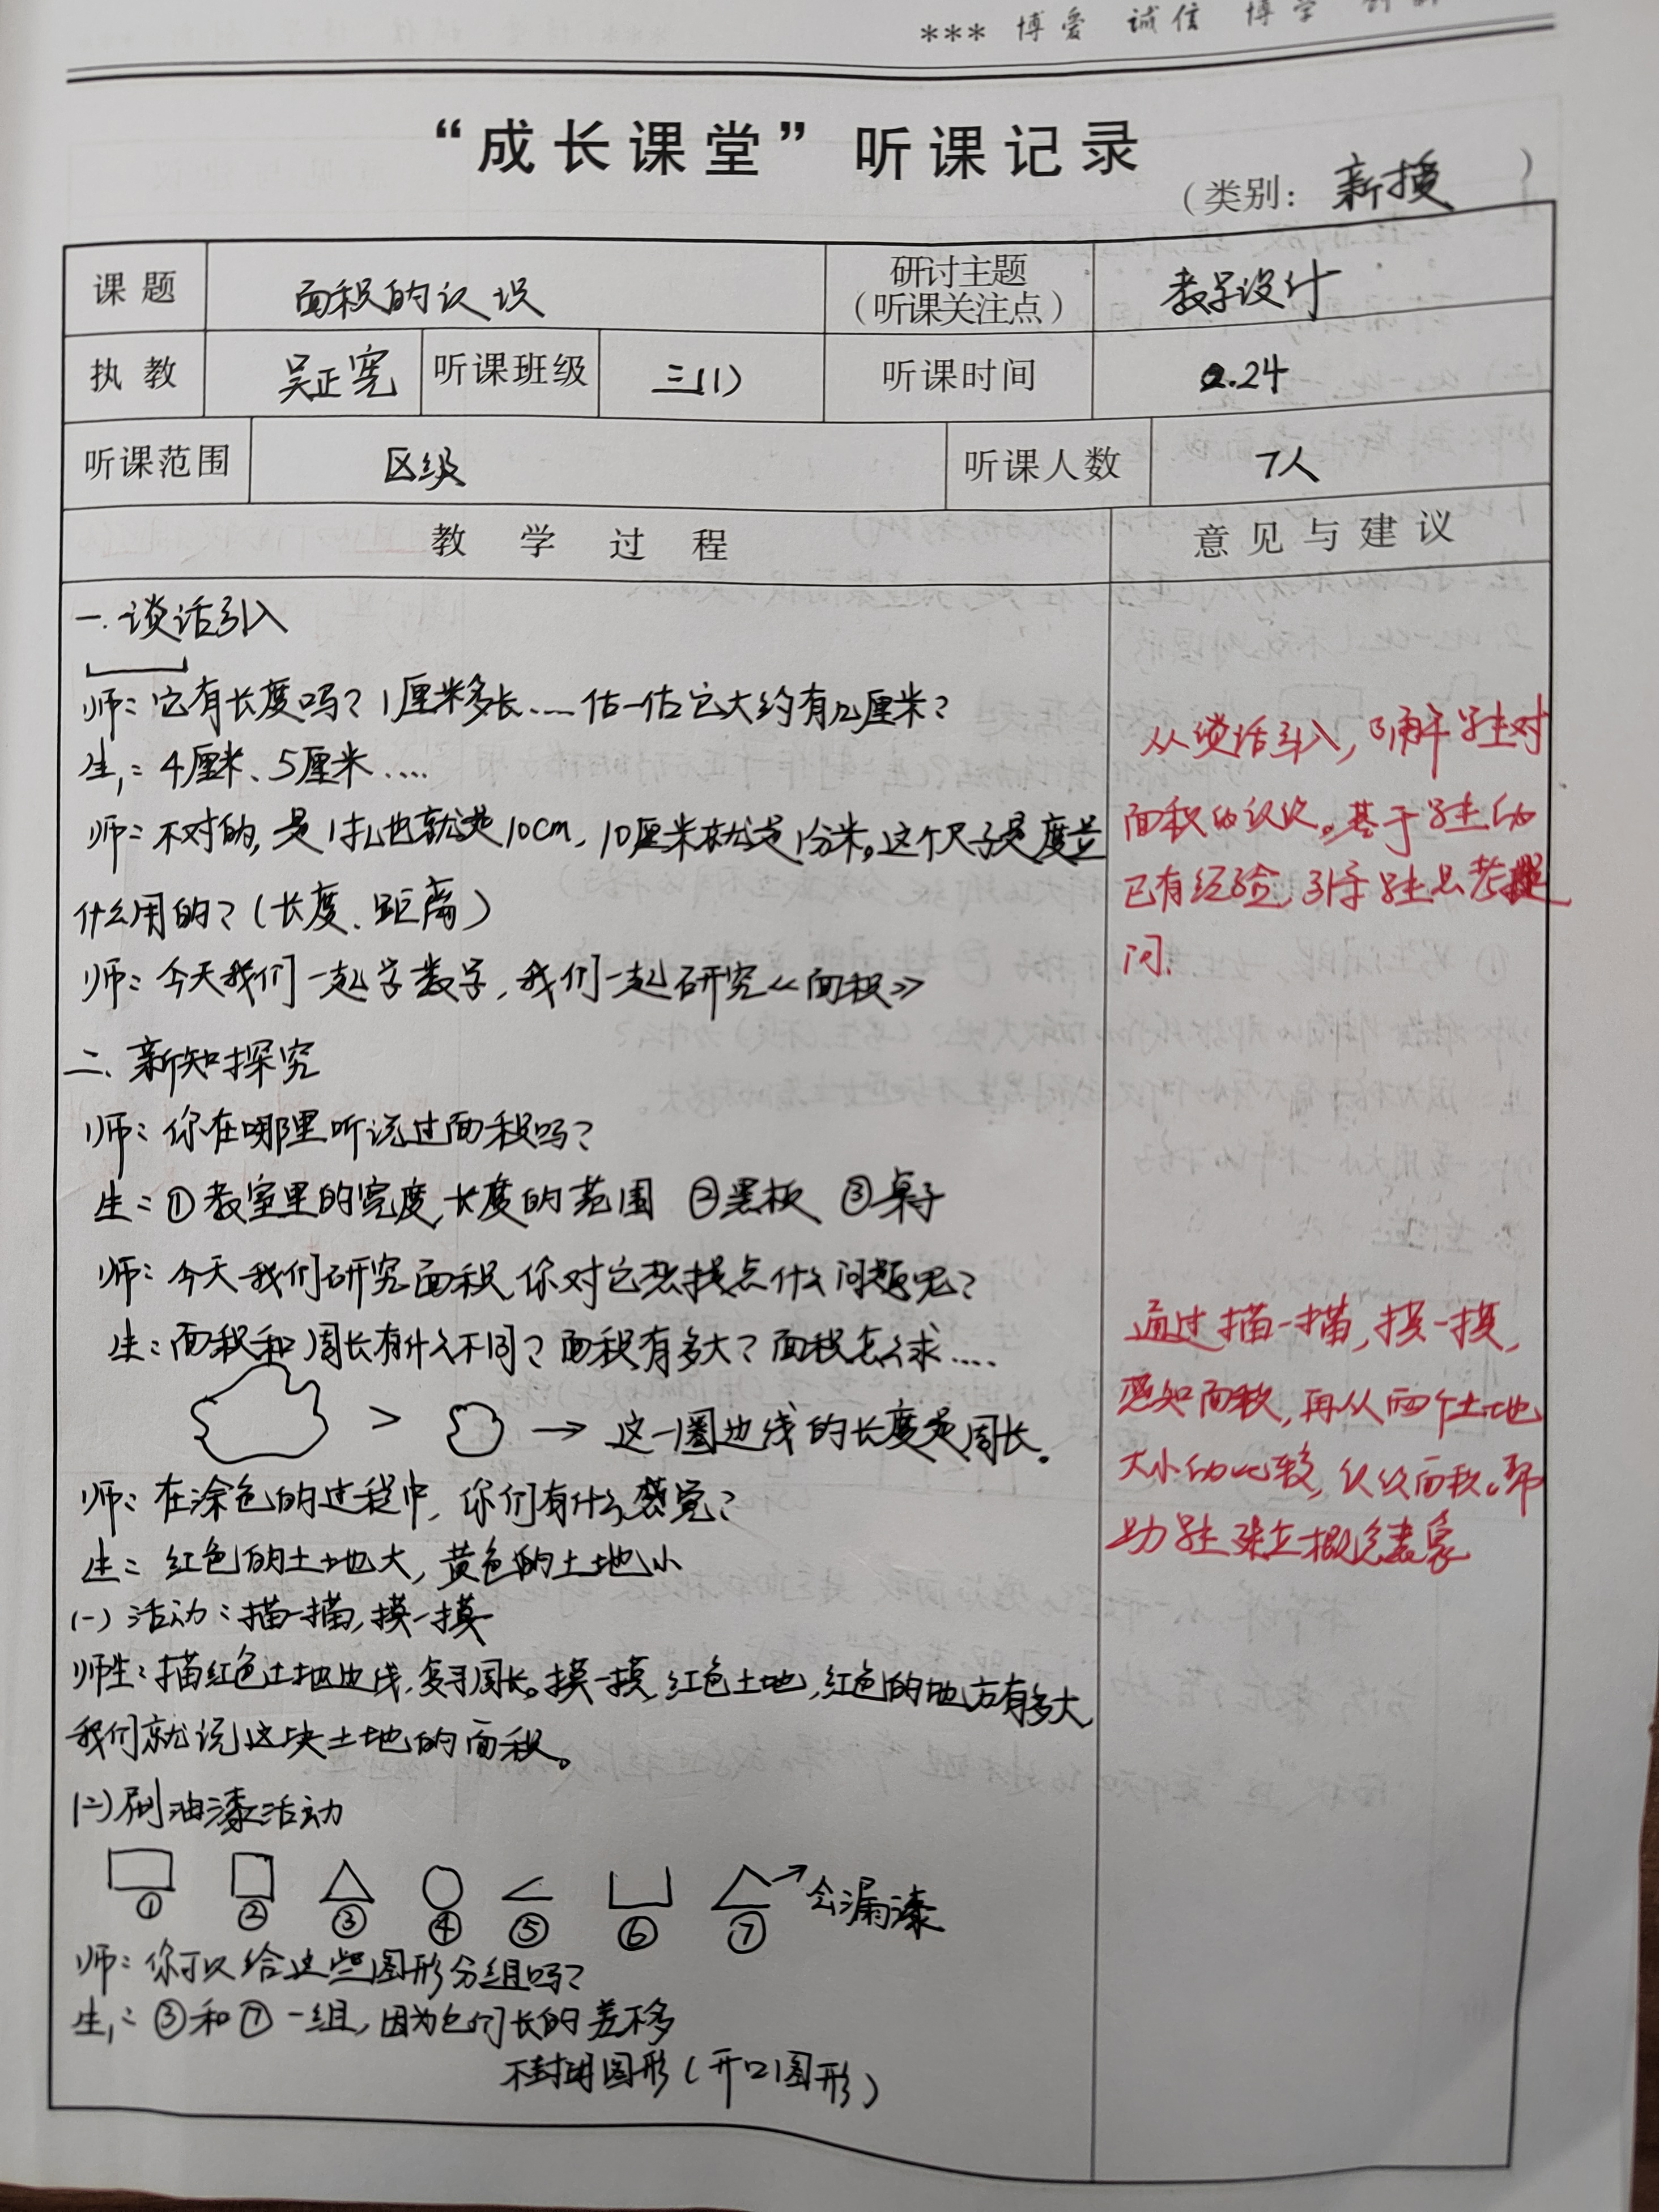 *** 博爱 诚信 博学 创新
“成长课堂”听课记录
(类别: 新授 )
课题 面积的认识 研讨主题(听课关注点) 教学设计
执教 吴正宪 听课班级 三(1) 听课时间 2.24
听课范围 区级 听课人数 7人
教学过程 意见与建议
一.谈话引入
师:它有长度吗?1厘米多长....估一估它大约有几厘米?
生1:4厘米、5厘米....
师:不对的,是1扎也就是10cm,10厘米就是1分米。这个尺子是度量
什么用的?(长度、距离)
师:今天我们一起学数学,我们一起研究《面积》
二、新知探究
师:你在哪里听说过面积吗?
生:①教室里的宽度,长度的范围 ②黑板 ③桌子
师:今天我们研究面积,你对它想提点什么问题呢?
生:面积和周长有什么不同?面积有多大?面积怎么求....
> → 这一圈边线的长度是周长。
师:在涂色的过程中,你们有什么感觉?
生:红色的土地大,黄色的土地小
(一)活动:描一描,摸一摸
师生:描红色土地边线,复习周长。摸一摸,红色土地,红色的地方有多大,
我们就说这块土地的面积。
(二)刷油漆活动
① ② ③ ④ ⑤ ⑥ ⑦ →会漏漆
师:你可以给这些图形分组吗?
生1:③和⑦一组,因为它们长的差不多
不封闭图形(开口图形)
从谈话引入,了解学生对
面积的认识。基于学生的
已有经验,引导学生思考提
问.
通过描一描,摸一摸,
感知面积,再从两个土地
大小的比较,认识面积。帮
助学生建立概念表象